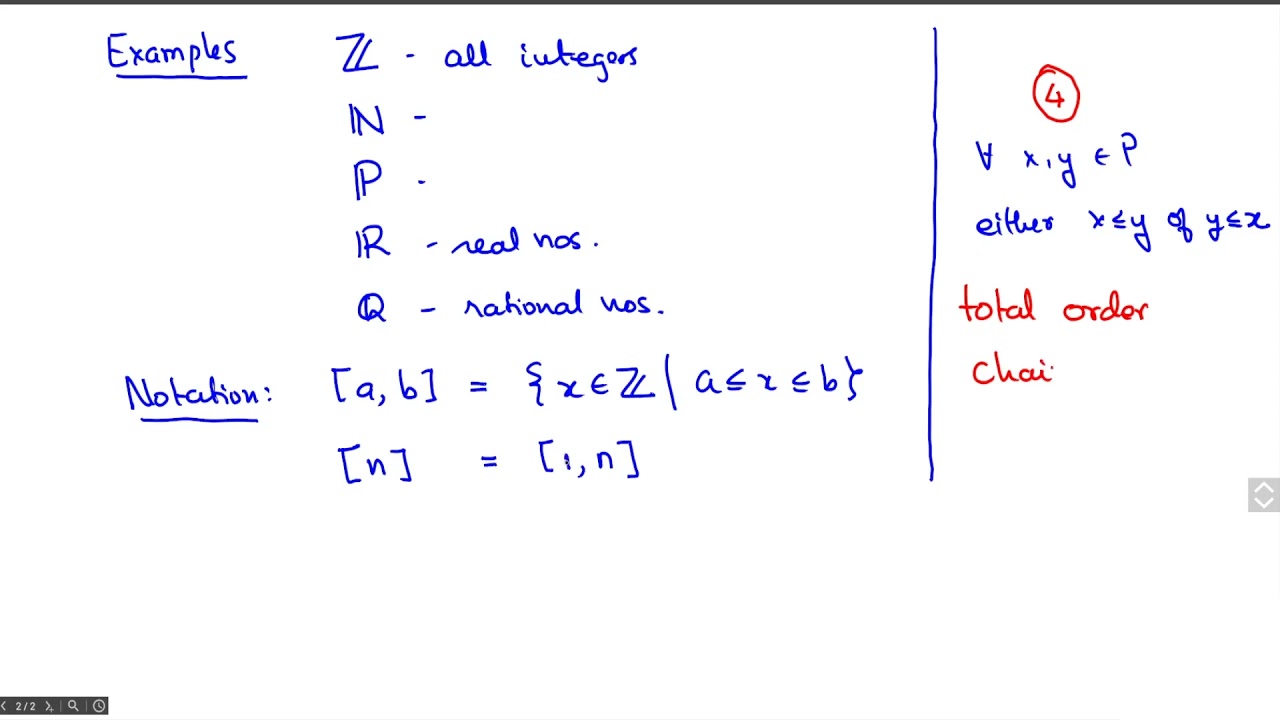 Examples ℤ - all integers
ℕ -
ℙ -
ℝ - real nos.
ℚ - rational nos.
Notation: [a, b] = {x ∈ ℤ | a ≤ x ≤ b}
[n] = [1, n]
4
∀ x, y ∈ P
either x ≤ y of y ≤ x
total order
Chai
2/2